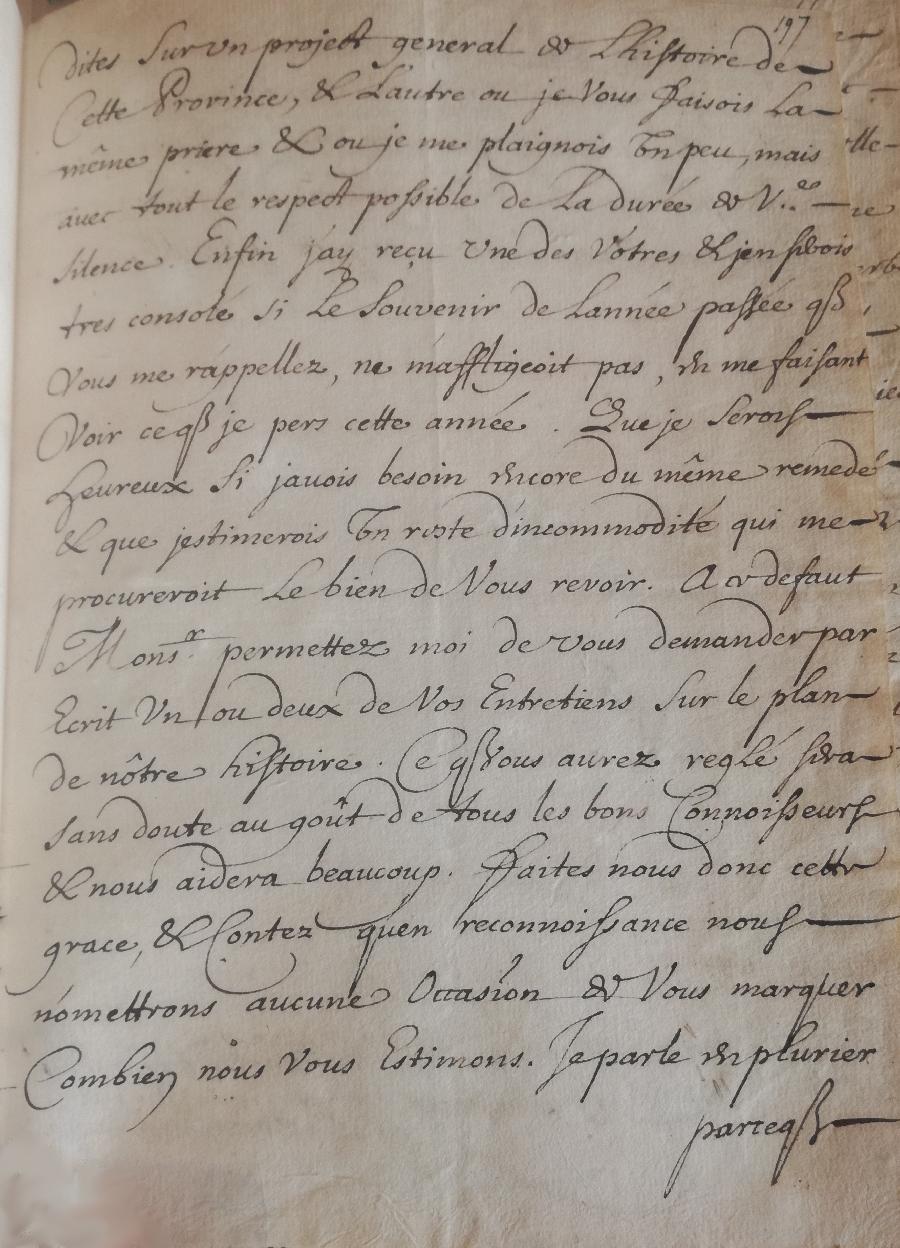 197
dites Sur vn project general de Lhistoire de
Cette Province, & Lautre ou je Vous faisois La
même priere & ou je me plaignois Vn peu, mais
avec tout le respect possible de La durée de V.re
silence. Enfin j'ay reçu vne des Vôtres & jen serois
tres consolé si Le Souvenir de Lannée passée qe
Vous me rappellez, ne m'affligeoit pas, en me faisant
Voir ce qe je pers cette année. Que je serois
heureux Si javois besoin encore du même remede
& que jestimerois Vn reste d'incommodité qui me
procureroit Le bien de Vous revoir. A ce defaut
Monsr. permettez moi de vous demander par
Ecrit Vn ou deux de Vos Entretiens Sur le plan
de nôtre histoire. Ce qe Vous aurez reglé sera
sans doute au goût de tous les bons Connoisseurs
& nous aidera beaucoup. faites nous donc cette
grace, & Contez quen reconnoissance nous
n'omettrons aucune Occasion de Vous marquer
Combien nous Vous Estimons. Je parle en plurier
parceqe